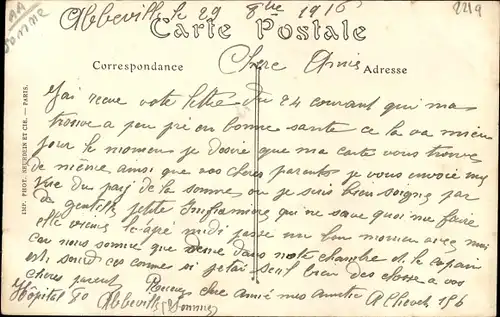 AA
Somme
2219
Abbeville le 29 8bre 1916
Carte Postale
Correspondance
Adresse
Chere Amie
J'ai recue vote lettre du 24 courant qui ma
trouve a peu prè en bonne sante ce la va mieu
pour le moment je desire que ma carte vous trouve
de même ainsi que vos chers parents je vous envoie une
Vue du païj de la somme ou je suis bien soigner par
de gentille petite Infiamiere qui ne save quoi me faire
elle vienne le apré midi passe un bon moment avec moi
car nous somme que deux dans notre chambre et le copain
est sourdi cas comme si jetai seul bien des chose a vos
chers parent Recevez chere amie mes amitie
Hôpital 80 Abbeville (Somme)
IMP. PHOT. NEURDEIN ET CIE. — PARIS.